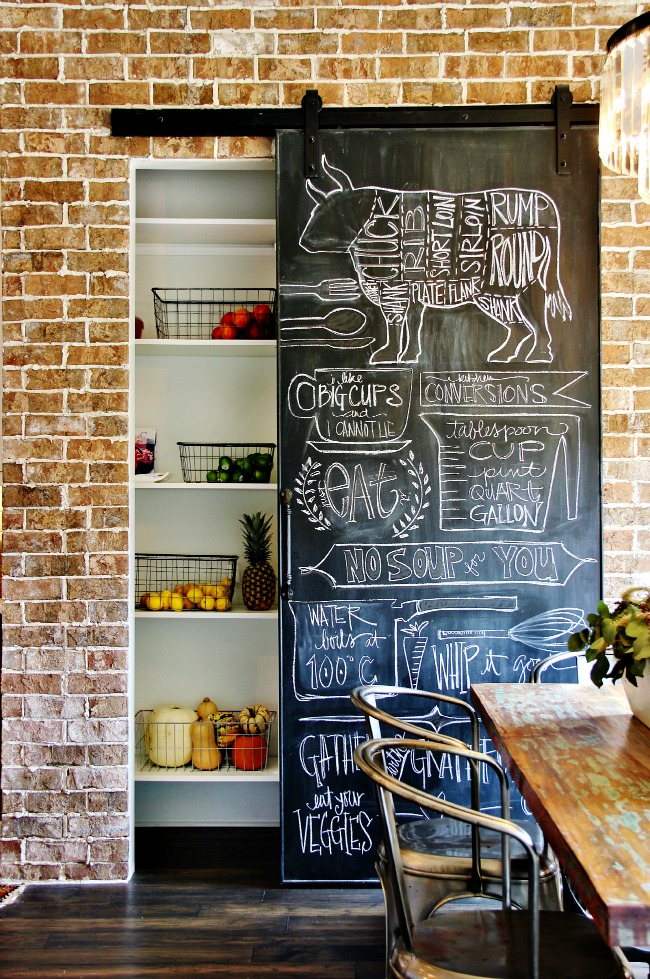 CHUCK
RIB
SHORT LOIN
SIRLOIN
RUMP
ROUND
SHANK
PLATE
FLANK
SHANK
i like
BIG CUPS
and
I CANNOT LIE
kitchen
CONVERSIONS
tablespoon
CUP
pint
QUART
GALLON
eat
NO SOUP for YOU
WATER
boils at
100°C
WHIP it go
GATHE
with
GRATEF
eat your
VEGGIES